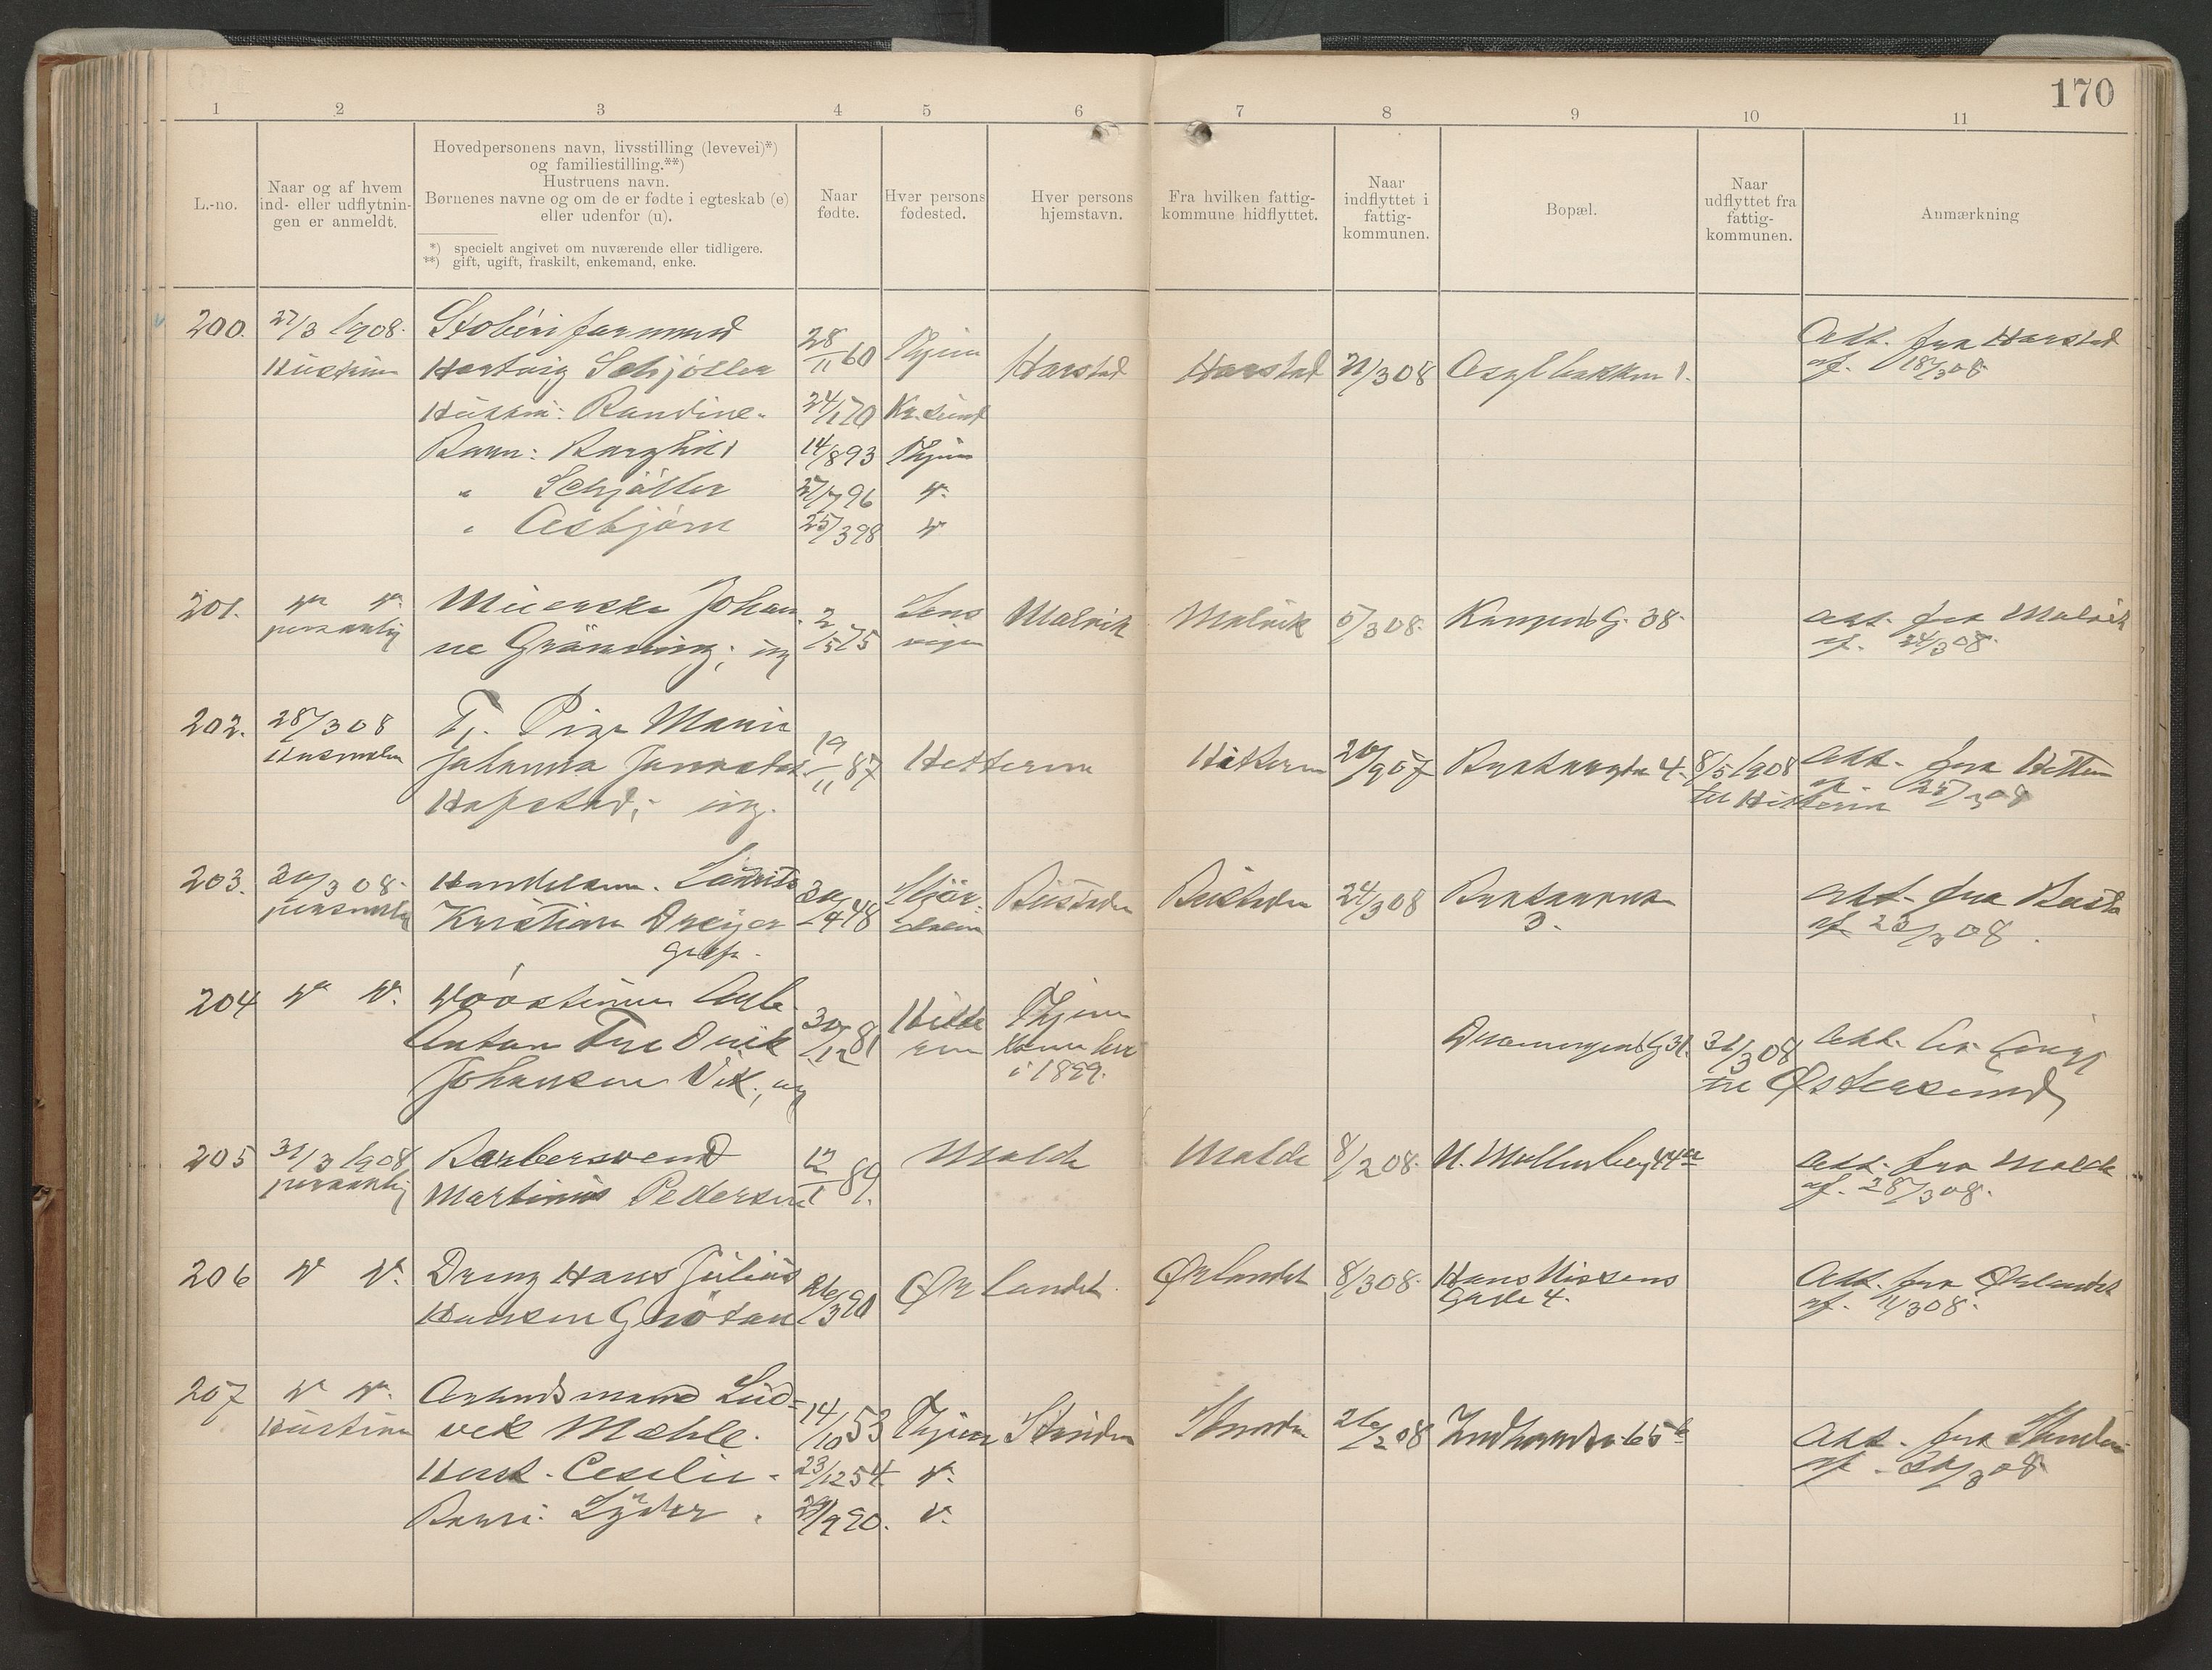 170
1 2 3 4 5 6 7 8 9 10 11
L.-no.
Naar og af hvem
ind- eller udflytnin-
gen er anmeldt.
Hovedpersonens navn, livsstilling (levevei)*)
og familiestilling.**)
Hustruens navn.
Børnenes navne og om de er fødte i egteskab (e)
eller udenfor (u).
*) specielt angivet om nuværende eller tidligere.
**) gift, ugift, fraskilt, enkemand, enke.
Naar
fødte.
Hver persons
fødested.
Hver persons
hjemstavn.
Fra hvilken fattig-
kommune hidflyttet.
Naar
indflyttet i
fattig-
kommunen.
Bopæl.
Naar
udflyttet fra
fattig-
kommunen.
Anmærkning
200. 27/3 1908. Støberiformand
Hustruen Hartvig Schjöller 28/11 60 Thjem Harstad Harstad 21/3 08 Asylbakken 1. Att. fra Harstad
af. 18/3 08
Hustru: Randine. 24/1 70 Kr.sund
Barn: Borghild 14/8 93 Thjem
" Schjöller 27/7 96 "
" Asbjörn 25/3 98 "
201. " "
personlig Johan-
ne Grönning; ug 2/5 75 Malvik Malvik 5/3 08. Kongens G. 38. Att. fra Malvik
af. 24/3 08.
202. 28/3 08 Tj. Pige Marie
Johanna 19/11 87 Hitteren Hitteren 20/9 07 4. 8/5 1908
til Hitteren Att. fra Hitteren
af 25/3 08
ug.
203. 30/3 08. Handelsm. Laurits
personlig Kristian Dreyer 30/4 48 24/3 08
3. Att. fra
af 23/3 08.
gift.
204 " "
Anton Fredrik
Johansen Vik, ug 30/12 81 Hitteren Thjem
i 1899. Dronningens G 31. 31/3 08
til Østersund
205 31/3 1908 Barbersvend
personlig Martinus Pedersen 12/1 89. Molde Molde 8/2 08. N. Møllenberg 44 a Att. fra Molde
af. 28/3 08.
206 " " Dreng Hans Julius
Hansen 26/3 90 Ørlandet Ørlandet 8/3 08. Hans Nissens
Gade 4. Att. fra Ørlandet
af. 11/3 08.
207 " " Arbeidsmand Lud-
Hustruen vik Mæhle. 14/10 53 Thjem Strinden Strinden 26/2 08 65 b Att. fra Strinden
af. 30/3 08
Hust. Cecilie 23/12 54 "
Barn: Lyder 29/9 90. "